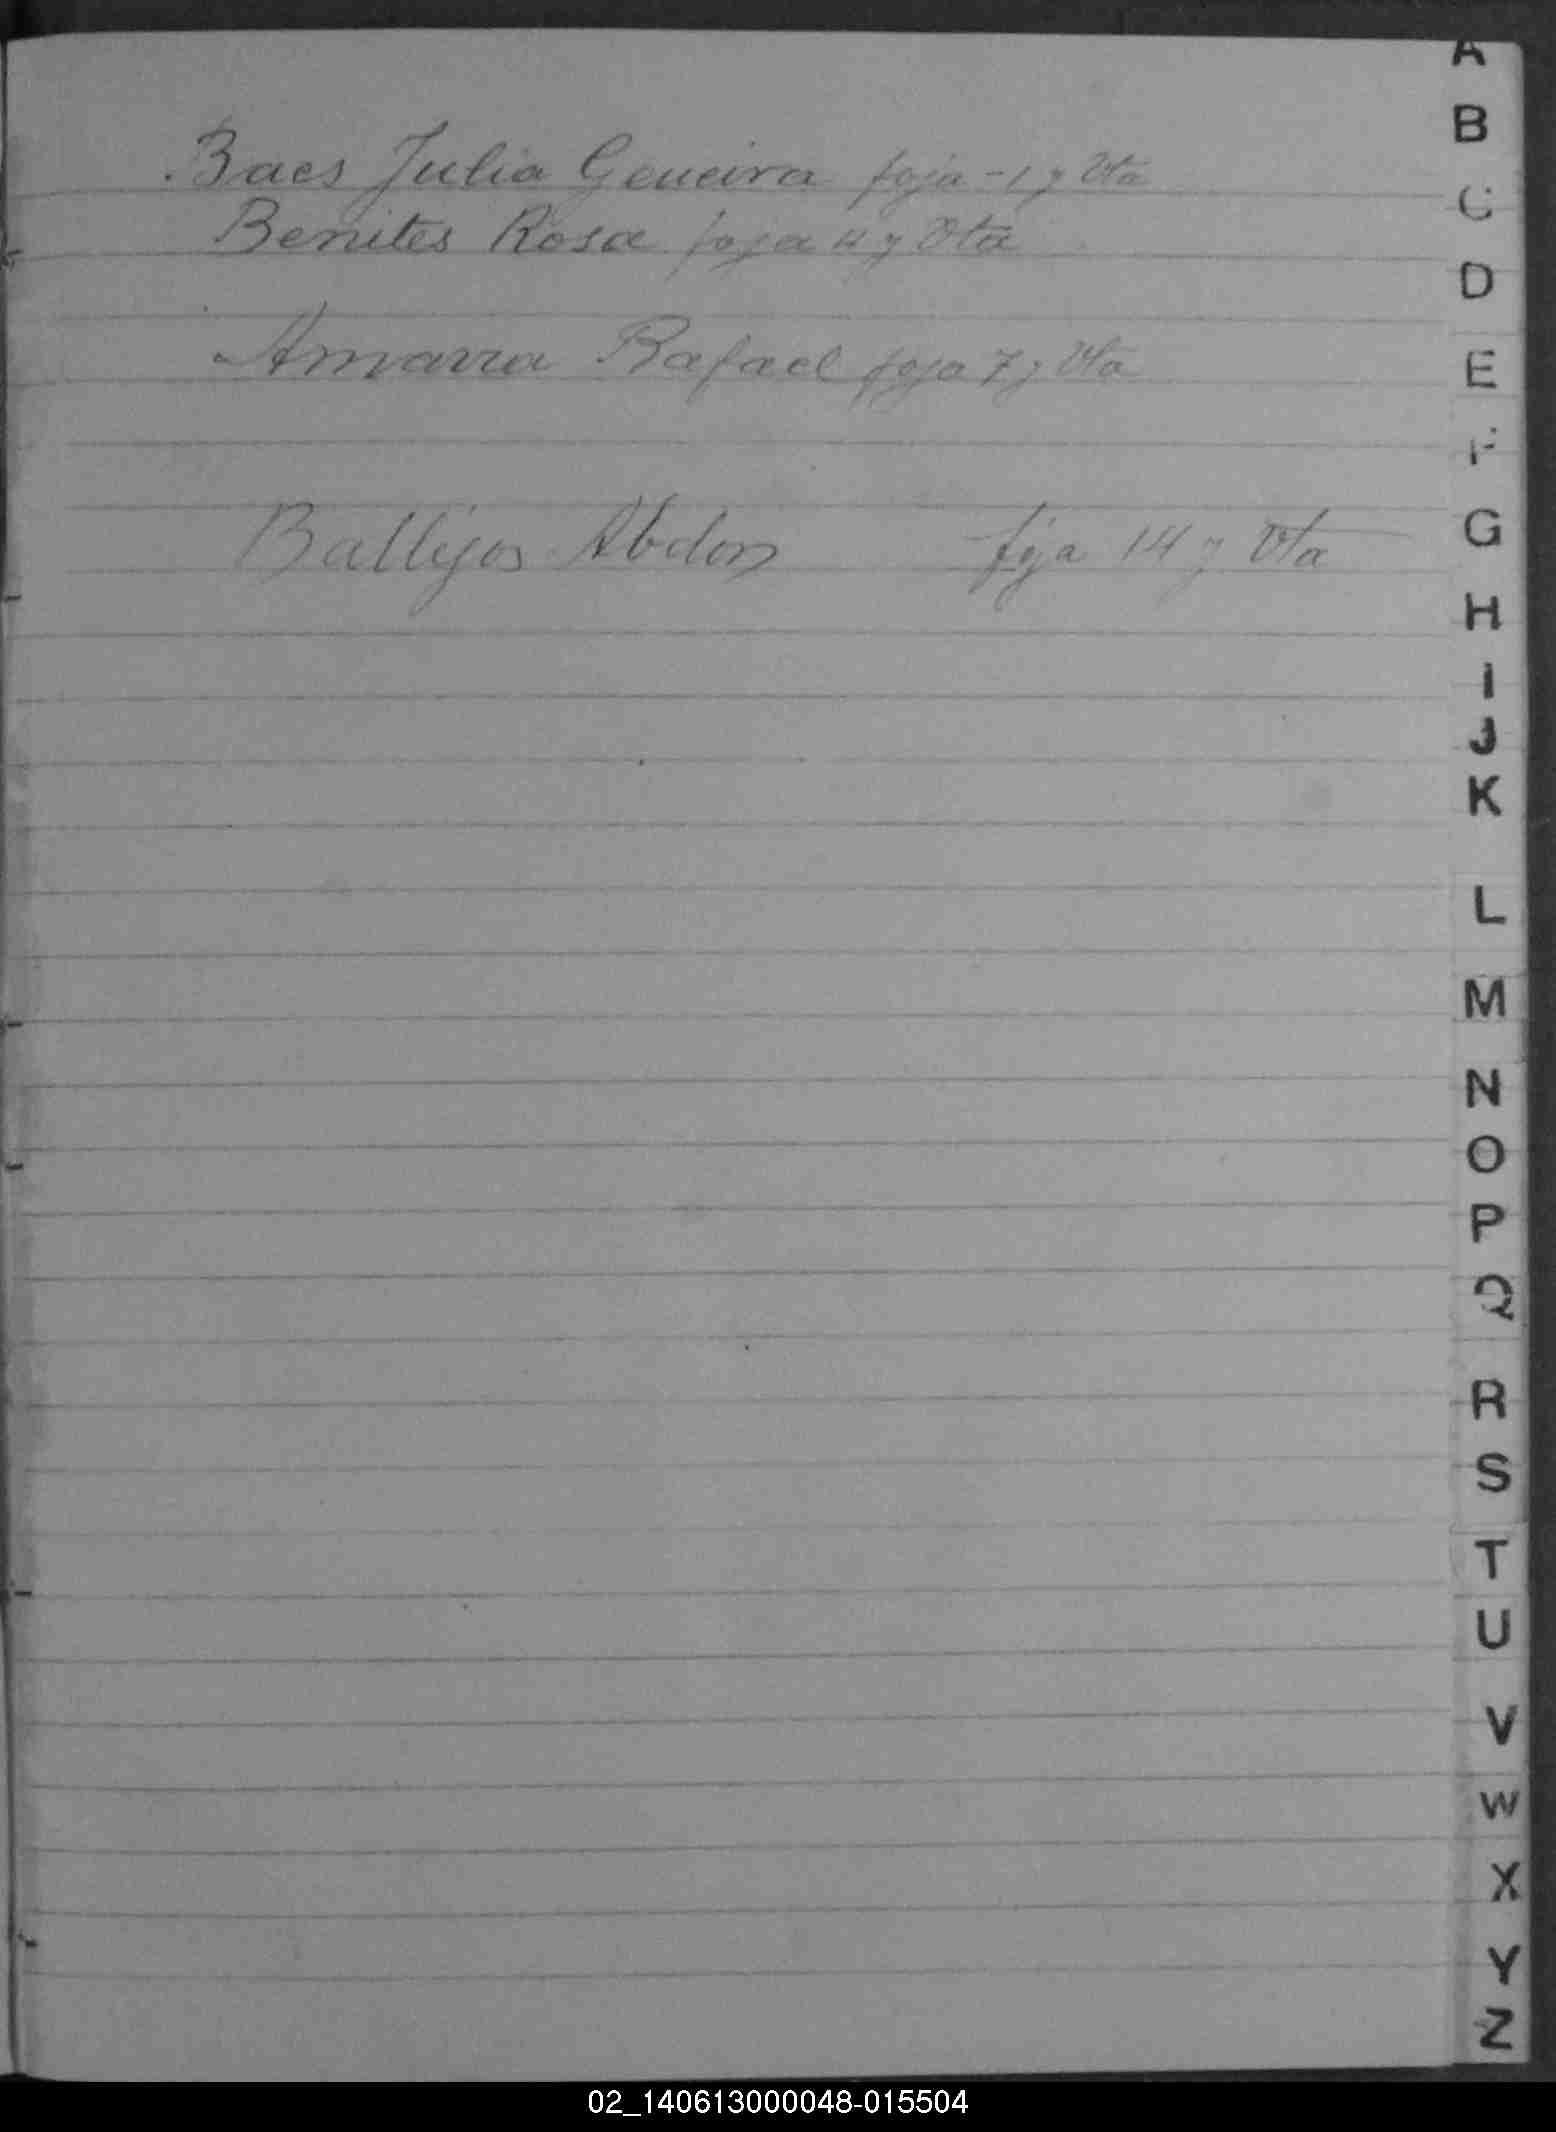 Baes Julia Geneira foja - 1 y Vta
Benites Rosa foja 4 y Vta
Amarra Rafael foja 7 y Vta
Ballejos Abdon foja 14 y Vta
A
B
C
D
E
F
G
H
I
J
K
L
M
N
O
P
Q
R
S
T
U
V
W
X
Y
Z
02_140613000048-015504